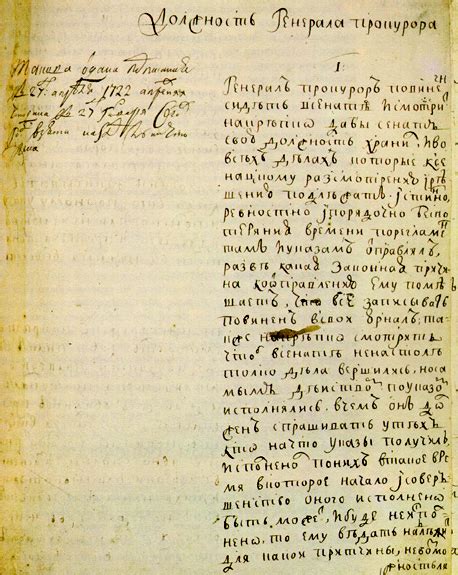 Должность Генерала прокурора
1:
Генералъ прокуроръ повине
сидѣть всенатѣ исмотрит
накрѣпко дабы сенатъ
свою должность хранил иво
всѣхъ дѣлахъ которые ксе
нацкому разсмотренію ірѣ
шению подлѣжатъ істинно,
ревностно іпорядочно безпо
терянія времени порегламе
тамъ иуказамъ отправлялъ,
развѣ какая законная прічі
на коотправлению ему помѣ
шаетъ, что все записывать
повиненъ всвои юрналъ, та
же накрѣпко смотрѣть
чтоб всенатѣ ненастолѣ
толко дѣла вершились, носа
мымъ дѣиствомъ поуказомъ
исполнялись, вчемъ онъ до
женъ спрашивать утѣхъ
кто начто указы получилъ,
исполнено поних втакое вре
мя вкоторое начало ісовер
шенство оного исполнено
быть может, ибуде неіспо
нено, то ему вѣдать надлежит
для какои причины, невозмо
жность ли
Такова отдана
въ 27 апрѣля 1722